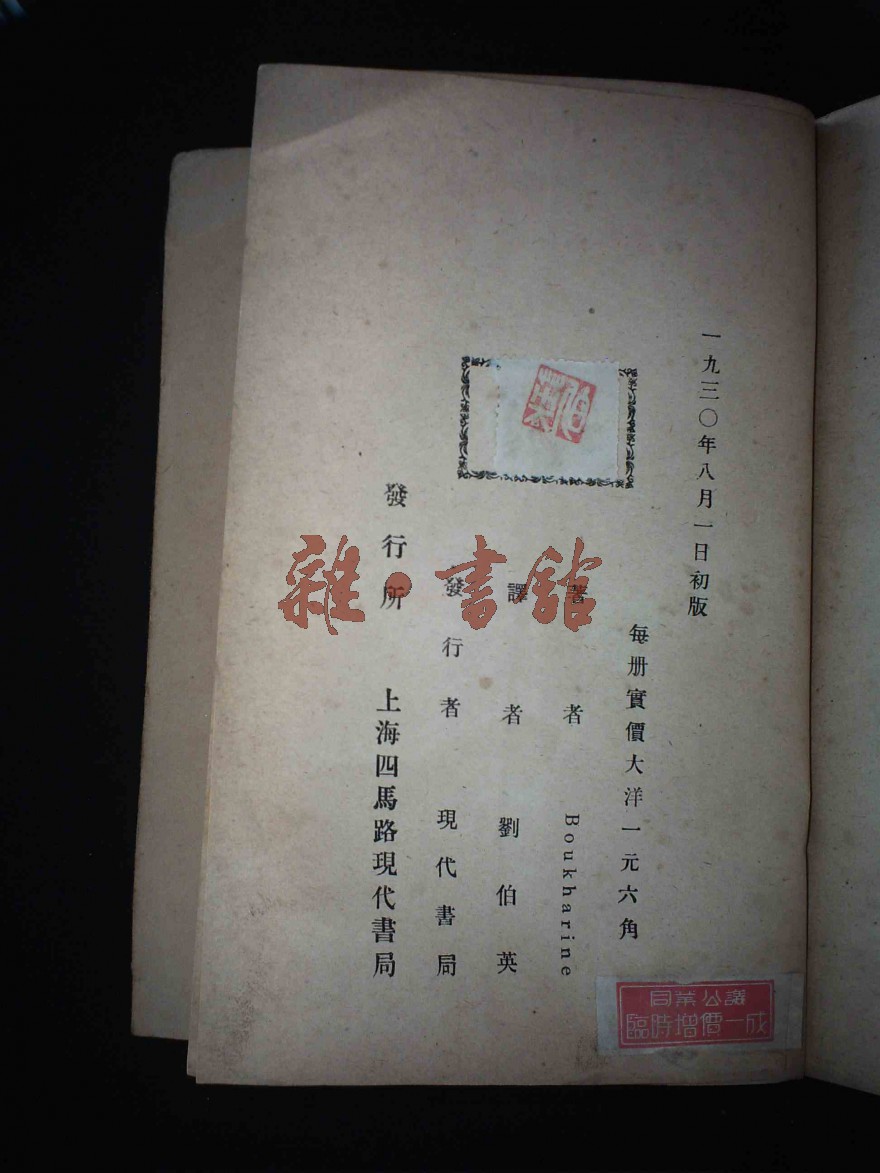 一九三〇年八月一日初版
每册實價大洋一元六角
著者 Boukharine
譯者 劉伯英
發行者 現代書局
發行所 上海四馬路現代書局
同業公議
臨時增價一成
雜·書館